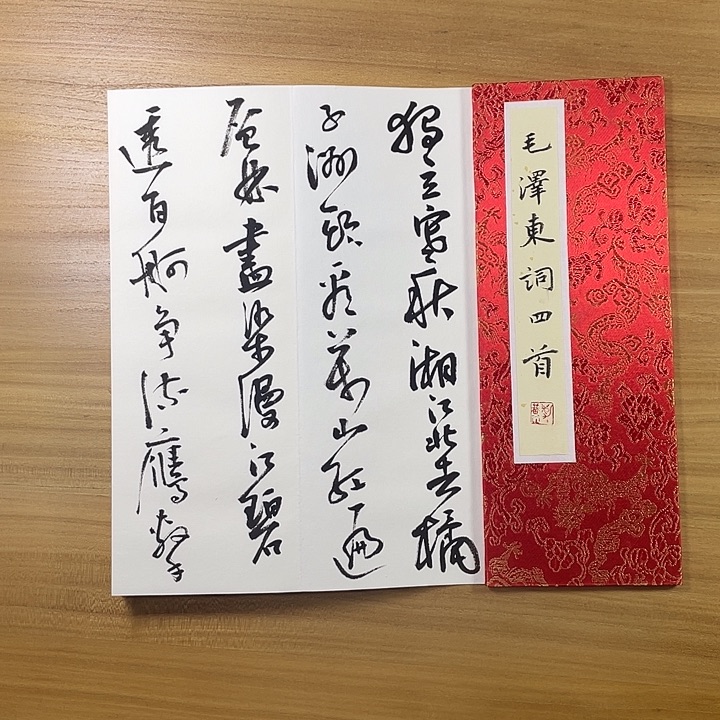 毛澤東詞四首
獨立寒秋湘江北去橘
子洲頭看萬山紅遍
层林盡染漫江碧
透百舸争流鷹擊